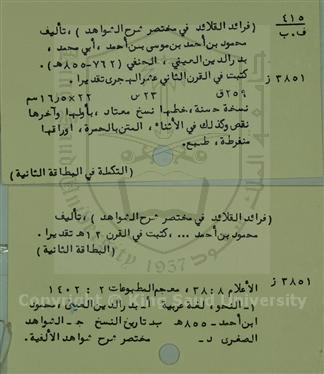 ٤١٥
ف.ب
(فرائد القلائد في مختصر شرح الشواهد)، تأليف
محمود بن أحمد بن موسى بن أحمد، أبي محمد،
بدر الدين العيني، الحنفي (٧٦٢-٨٥٥هـ).
٣٨٥١ ز
كتبت في القرن الثاني عشر الهجرى تقديرا.
٢٥٩ق ٢٣س ٢٢×١٦٫٥سم
نسخة حسنة، خطها نسخ معتاد، بأولها وآخرها
نقص وكذلك في الأثناء، المتن بالحمرة، أوراقها
منفرطة، طبع.
(التكملة في البطاقة الثانية)
(فرائد القلائد في مختصر شرح الشواهد)، تأليف
محمود بن أحمد ... ،كتبت في القرن ١٢هـ تقديرا.
(البطاقة الثانية)
٣٨٥١ ز
الأعلام ٨: ٣٨، معجم المطبوعات ٢: ١٤٠٢
١- النحو، لغة عربية أ- بدر الدين العيني، محمود
ابن أحمد-٨٥٥هـ ب- تاريخ النسخ ج- الشواهد
الصغرى د- مختصر شرح شواهد الألفية.
Copyright © King Saud University
1957